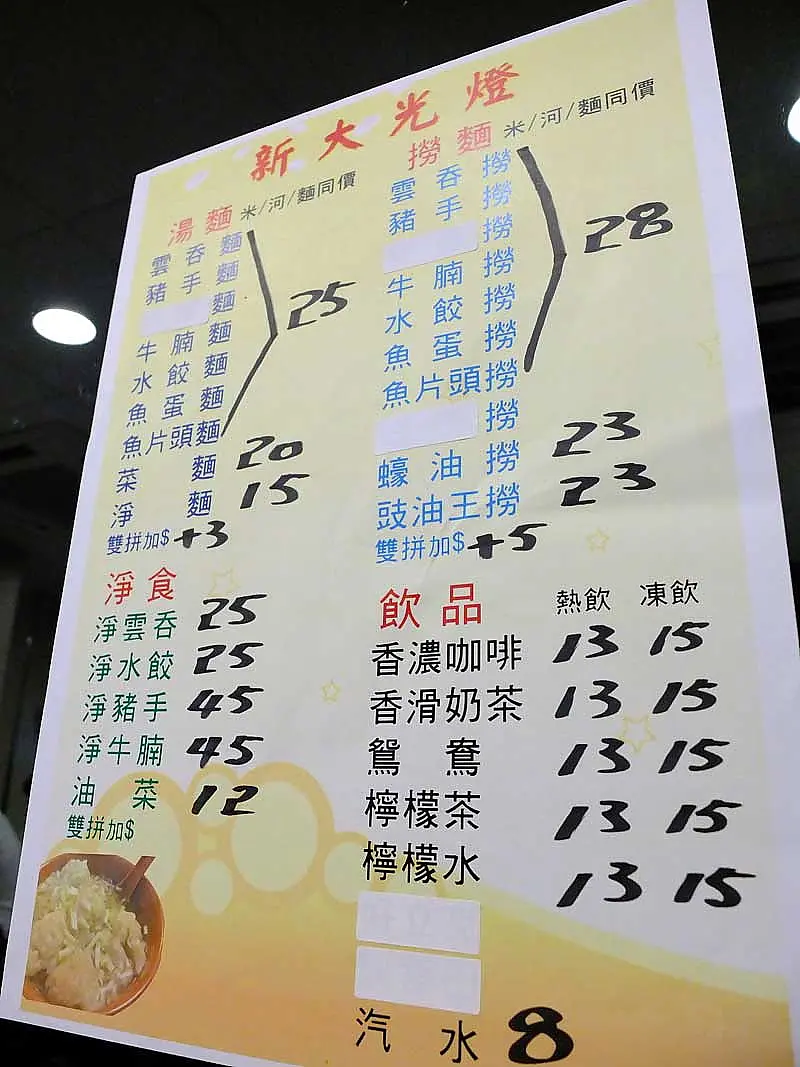 新大光燈
湯麵 米/河/麵同價
雲吞麵
豬手麵
麵
牛腩麵
水餃麵
魚蛋麵
魚片頭麵
25
菜麵 20
淨麵 15
雙拼加$ +3
撈麵 米/河/麵同價
雲吞撈
豬手撈
撈
牛腩撈
水餃撈
魚蛋撈
魚片頭撈
28
撈
蠔油撈 23
豉油王撈 23
雙拼加$ +5
淨食
淨雲吞 25
淨水餃 25
淨豬手 45
淨牛腩 45
油菜 12
雙拼加$
飲品 熱飲 凍飲
香濃咖啡 13 15
香滑奶茶 13 15
鴛鴦 13 15
檸檬茶 13 15
檸檬水 13 15
汽水 8